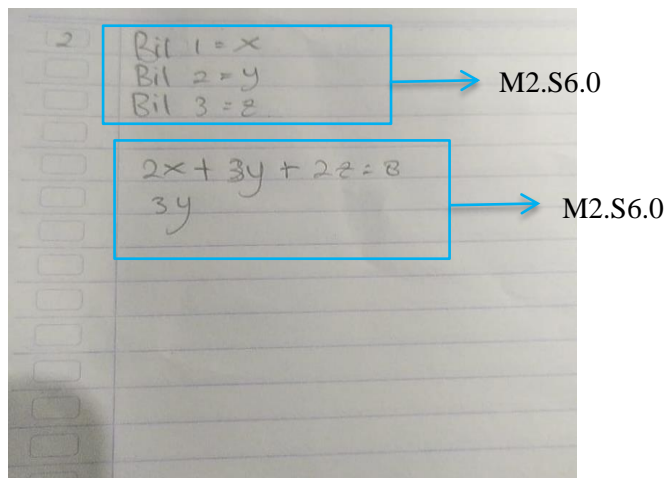 2
Bil 1 = x
Bil 2 = y
Bil 3 = z
M2.S6.0
2x + 3y + 2z = 8
3y
M2.S6.0